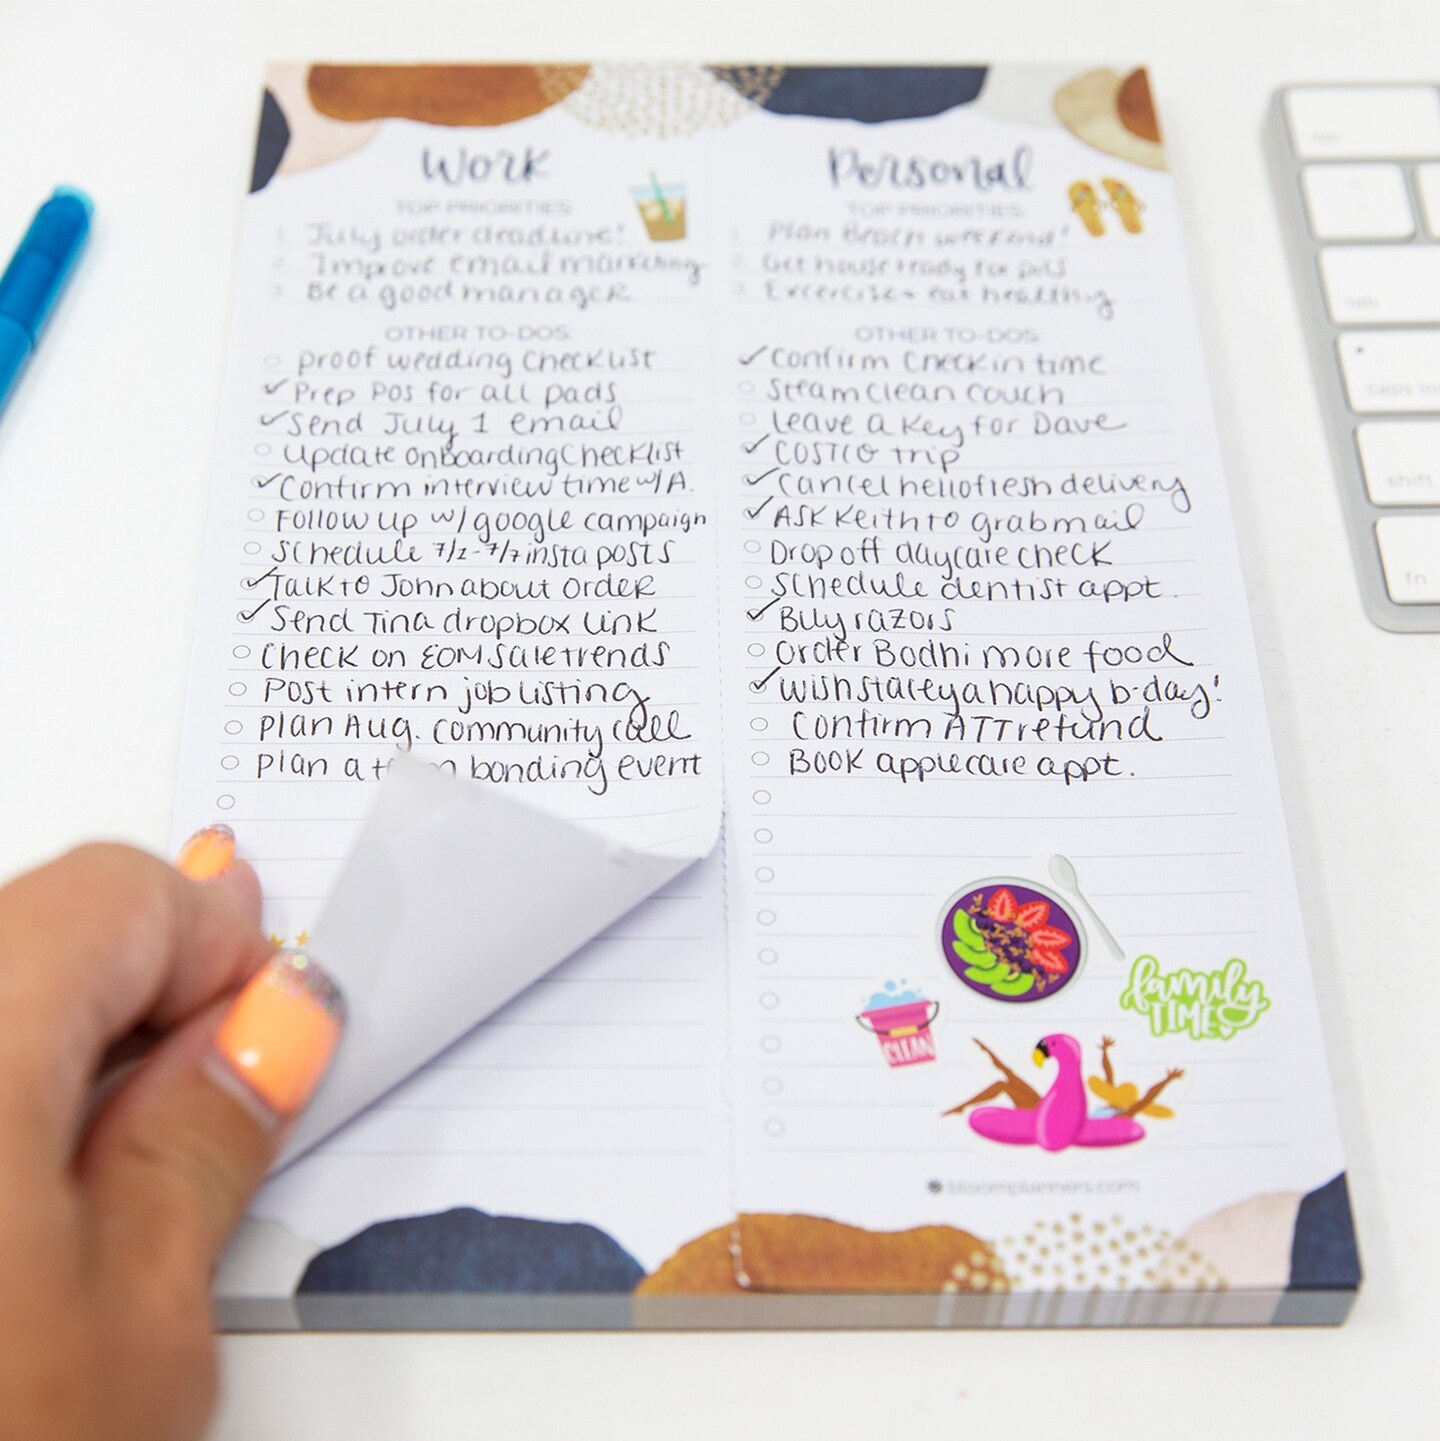 Work
TOP PRIORITIES:
1. July order deadline!
2. Improve email marketing
3. Be a good manager
OTHER TO-DOS:
proof wedding checklist
✓ Prep POs for all pads
✓ Send July 1 email
update onboarding checklist
✓ Confirm interview time w/ A.
Follow up w/ google campaign
Schedule 7/1-7/7 insta posts
✓ Talk to John about order
✓ Send Tina dropbox link
Check on EOM sale trends
Post intern job listing
Plan Aug. community call
Plan a bonding event
Personal
TOP PRIORITIES:
1. Plan Beach weekend!
2. Get house ready for pics
3. Excercise + eat healthy
OTHER TO-DOS:
✓ Confirm Check in time
Steam clean couch
leave a key for Dave
✓ COSTCO trip
✓ Cancel hellofresh delivery
✓ Ask Keith to grab mail
Drop off daycare check
Schedule dentist appt.
✓ Buy razors
Order Bodhi more food
✓ wish stacey a happy b-day!
Confirm ATT refund
Book applecare appt.
CLEAN
family
TIME
bloomplanners.com
tab
caps
shift
fn